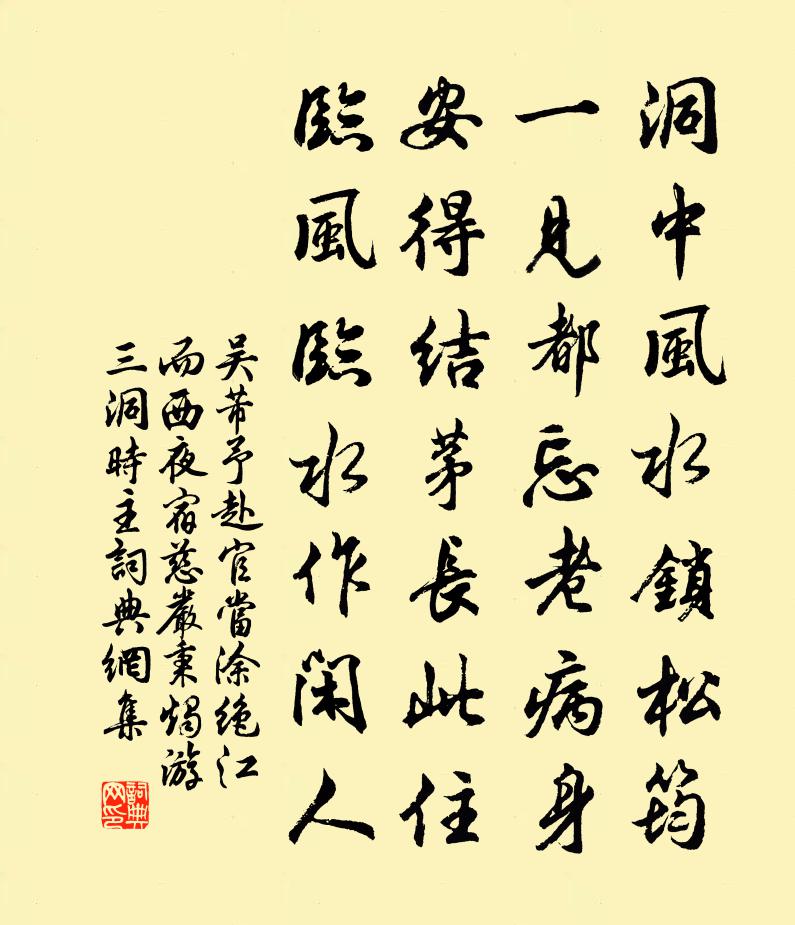 洞中風水鎖松筠
一見都忘老病身
安得結茅長此住
臨風臨水作閑人
吴芾予赴官當涂絶江
而西夜宿慈嚴秉燭游
三洞時主詞典網集
詞典网印